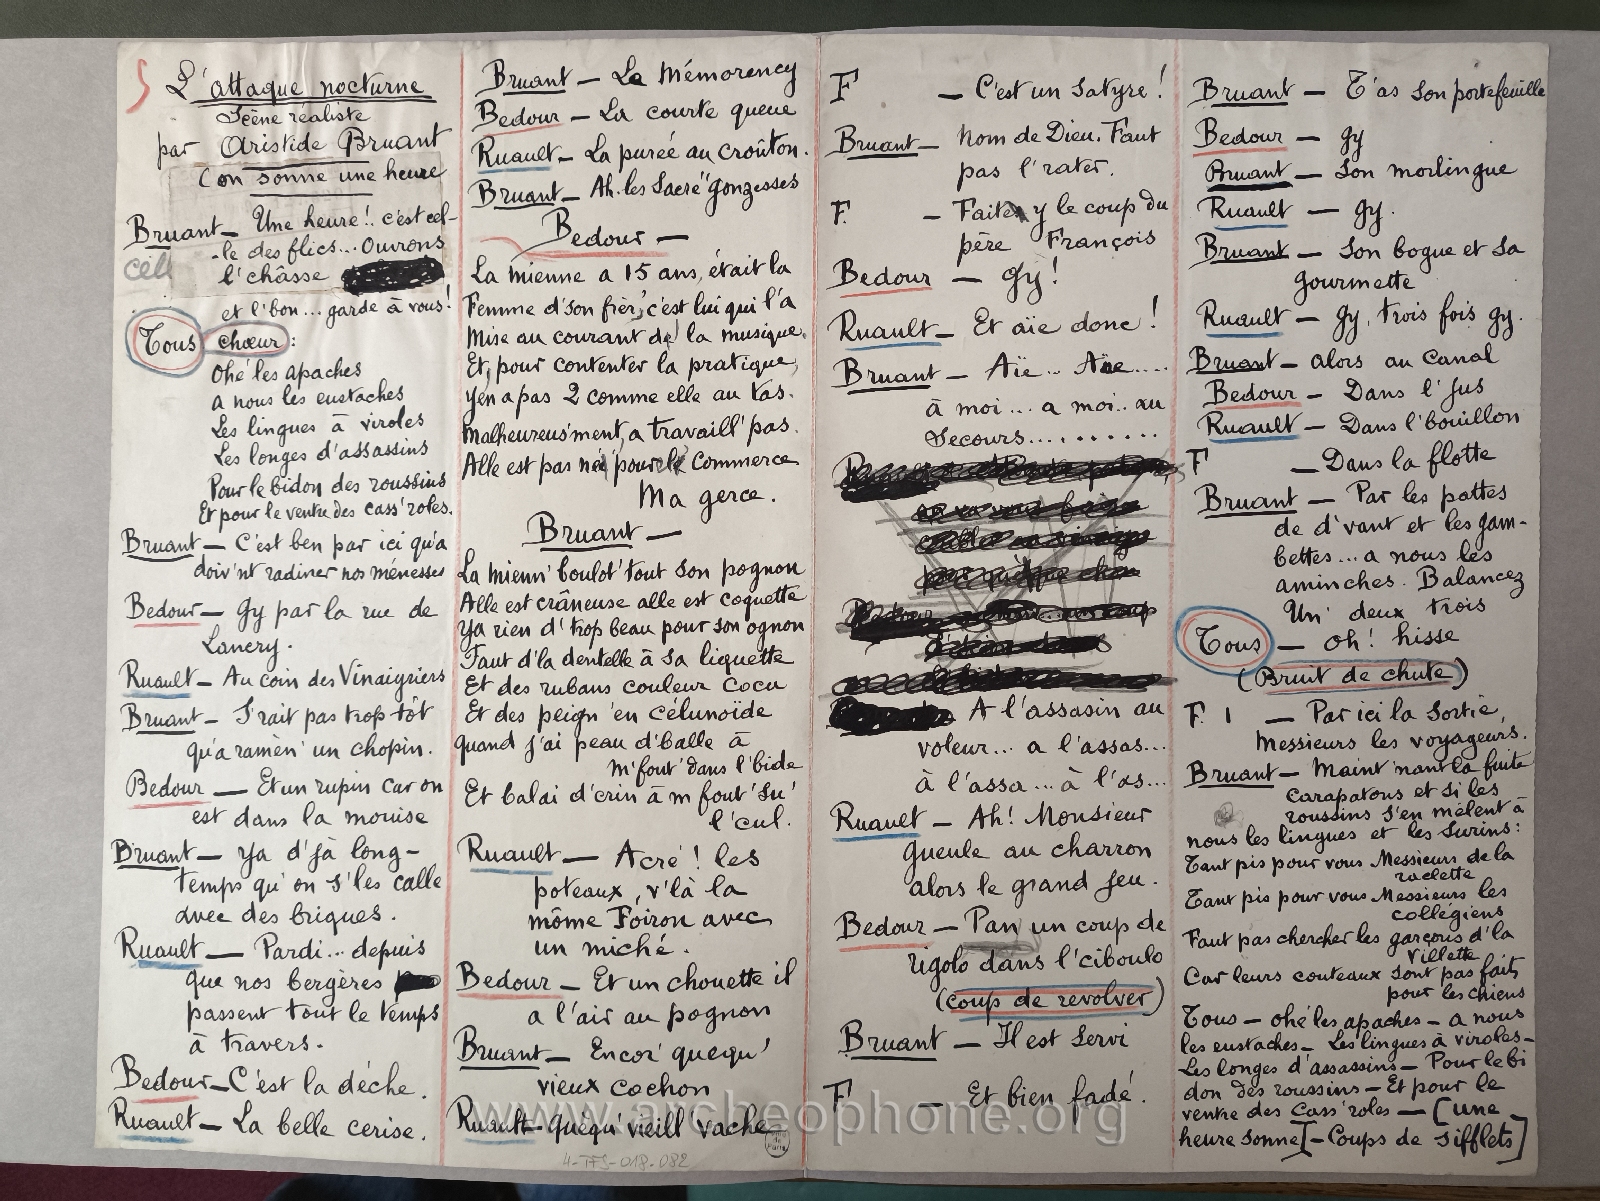 L'attaque nocturne
Scène réaliste
par Aristide Bruant
(on sonne une heure
Bruant — Une heure!. c'est cel-
-le des flics... Ouvrons
l'châsse
et l'bon... garde à vous!
Tous chœur :
Ohé les apaches
a nous les eustaches
Les lingues à viroles
Les longes d'assassins
Pour le bidon des roussins
Et pour le ventre des cass'roles.
Bruant — C'est ben par ici qu'a
doiv'nt radiner nos ménesses
Bedour — gy par la rue de
Lancry.
Ruault — Au coin des Vinaigriers
Bruant — S'rait pas trop tôt
qu'a ramèn' un chopin.
Bedour — Et un rupin car on
est dans la mouise
Bruant — ya d'jà long-
temps qu'on s'les calle
avec des briques.
Ruault — Pardi... depuis
que nos bergères
passent tout le temps
à travers.
Bedour — C'est la dèche.
Ruault — La belle cerise.
Bruant — La Mémorency
Bedour — La courte queue
Ruault — La purée au croûton.
Bruant — Ah. les Sacré' gonzesses
Bedour —
La mienne a 15 ans, était la
Femme d'son frèr', c'est lui qui l'a
Mise au courant de la musique.
Et, pour contenter la pratique,
yen a pas 2 comme elle au tas.
Malheureus'ment, a travaill' pas.
Alle est pas né' pour le commerce
Ma gerce.
Bruant —
La mienn' boulot' tout son pognon
Alle est crâneuse alle est coquette
Ya rien d'trop beau pour son ognon
Faut d'la dentelle à sa liquette
Et des rubans couleur cocu
Et des peign' en célunoïde
quand j'ai peau d'balle à
m'fout' dans l'bide
Et balai d'crin à m'fout' su'
l'cul.
Ruault — Acré! les
poteaux, v'là la
môme Foiron avec
un miché.
Bedour — Et un chouette il
a l'air au pognon
Bruant — Encor' quequ'
vieux cochon
Ruault — Quéqu' vieill' vache
4-TFS-018-082
F — C'est un satyre!
Bruant — Nom de Dieu. Faut
pas l'rater.
F. — Faites y le coup du
père François
Bedour — gy!
Ruault — Et aïe donc!
Bruant — Aïe... Aïe....
à moi... a moi.. au
secours..........
A l'assasin au
voleur... a l'assas...
à l'assa... à l'as...
Ruault — Ah! Monsieur
gueule au charron
alors le grand jeu.
Bedour — Pan un coup de
rigolo dans l'ciboulo
(coup de revolver)
Bruant — Il est servi
F — Et bien fadé.
Bruant — T'as son portefeuille
Bedour — gy
Bruant — Son morlingue
Ruault — gy.
Bruant — Son bogue et sa
gourmette
Ruault — gy, trois fois gy.
Bruant — alors au Canal
Bedour — Dans l'jus
Ruault — Dans l'bouillon
F — Dans la flotte
Bruant — Par les pattes
de d'vant et les gam-
bettes... a nous les
aminches. Balancez
Un' deux trois
Tous — oh! hisse
(Bruit de chute)
F. 1 — Par ici la sortie,
Messieurs les voyageurs.
Bruant — Maint'nant la fuite
carapatons et si les
roussins s'en mêlent à
nous les lingues et les surins :
Tant pis pour vous Messieurs de la
raclette
Tant pis pour vous Messieurs les
collégiens
Faut pas chercher les garçons d'la
Villette
Car leurs couteaux sont pas faits
pour les chiens
Tous — ohé les apaches — a nous
les eustaches — Les lingues à viroles —
Les longes d'assassins — Pour le bi
don des roussins — Et pour le
ventre des Cass'roles — [une
heure sonne] — Coups de sifflets]
www.archeophone.org